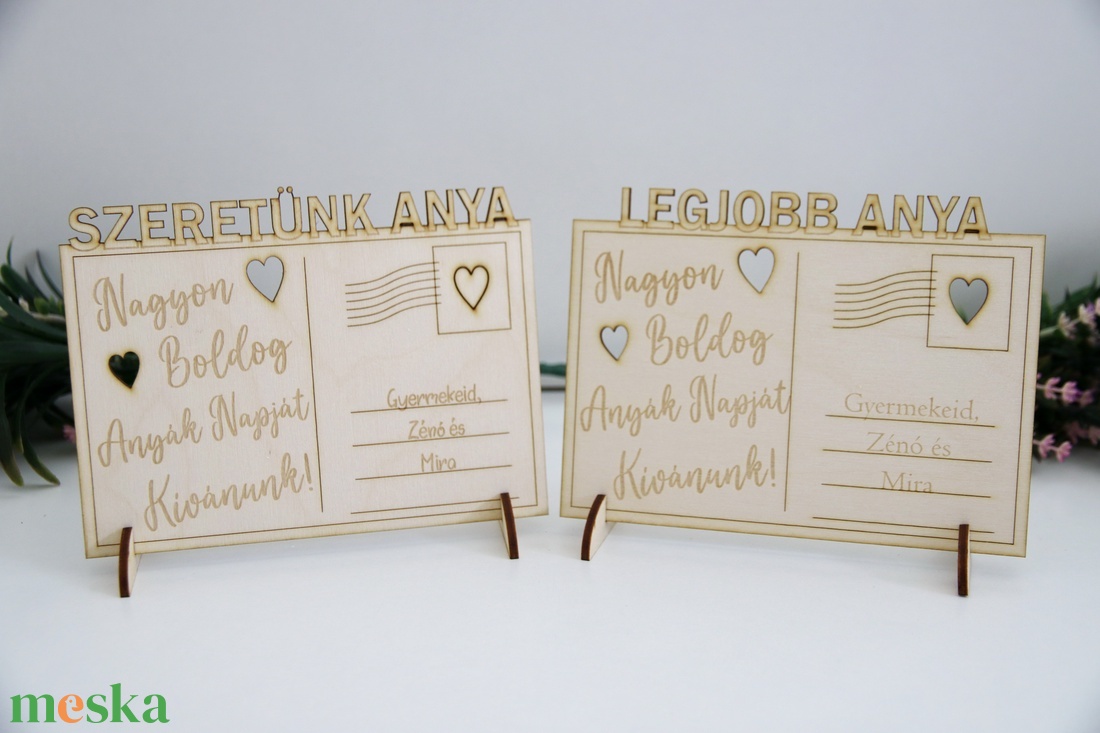 SZERETÜNK ANYA
Nagyon
Boldog
Anyák Napját
Kívánunk!
Gyermekeid,
Zénó és
Mira
LEGJOBB ANYA
Nagyon
Boldog
Anyák Napját
Kívánunk!
Gyermekeid,
Zénó és
Mira
meska